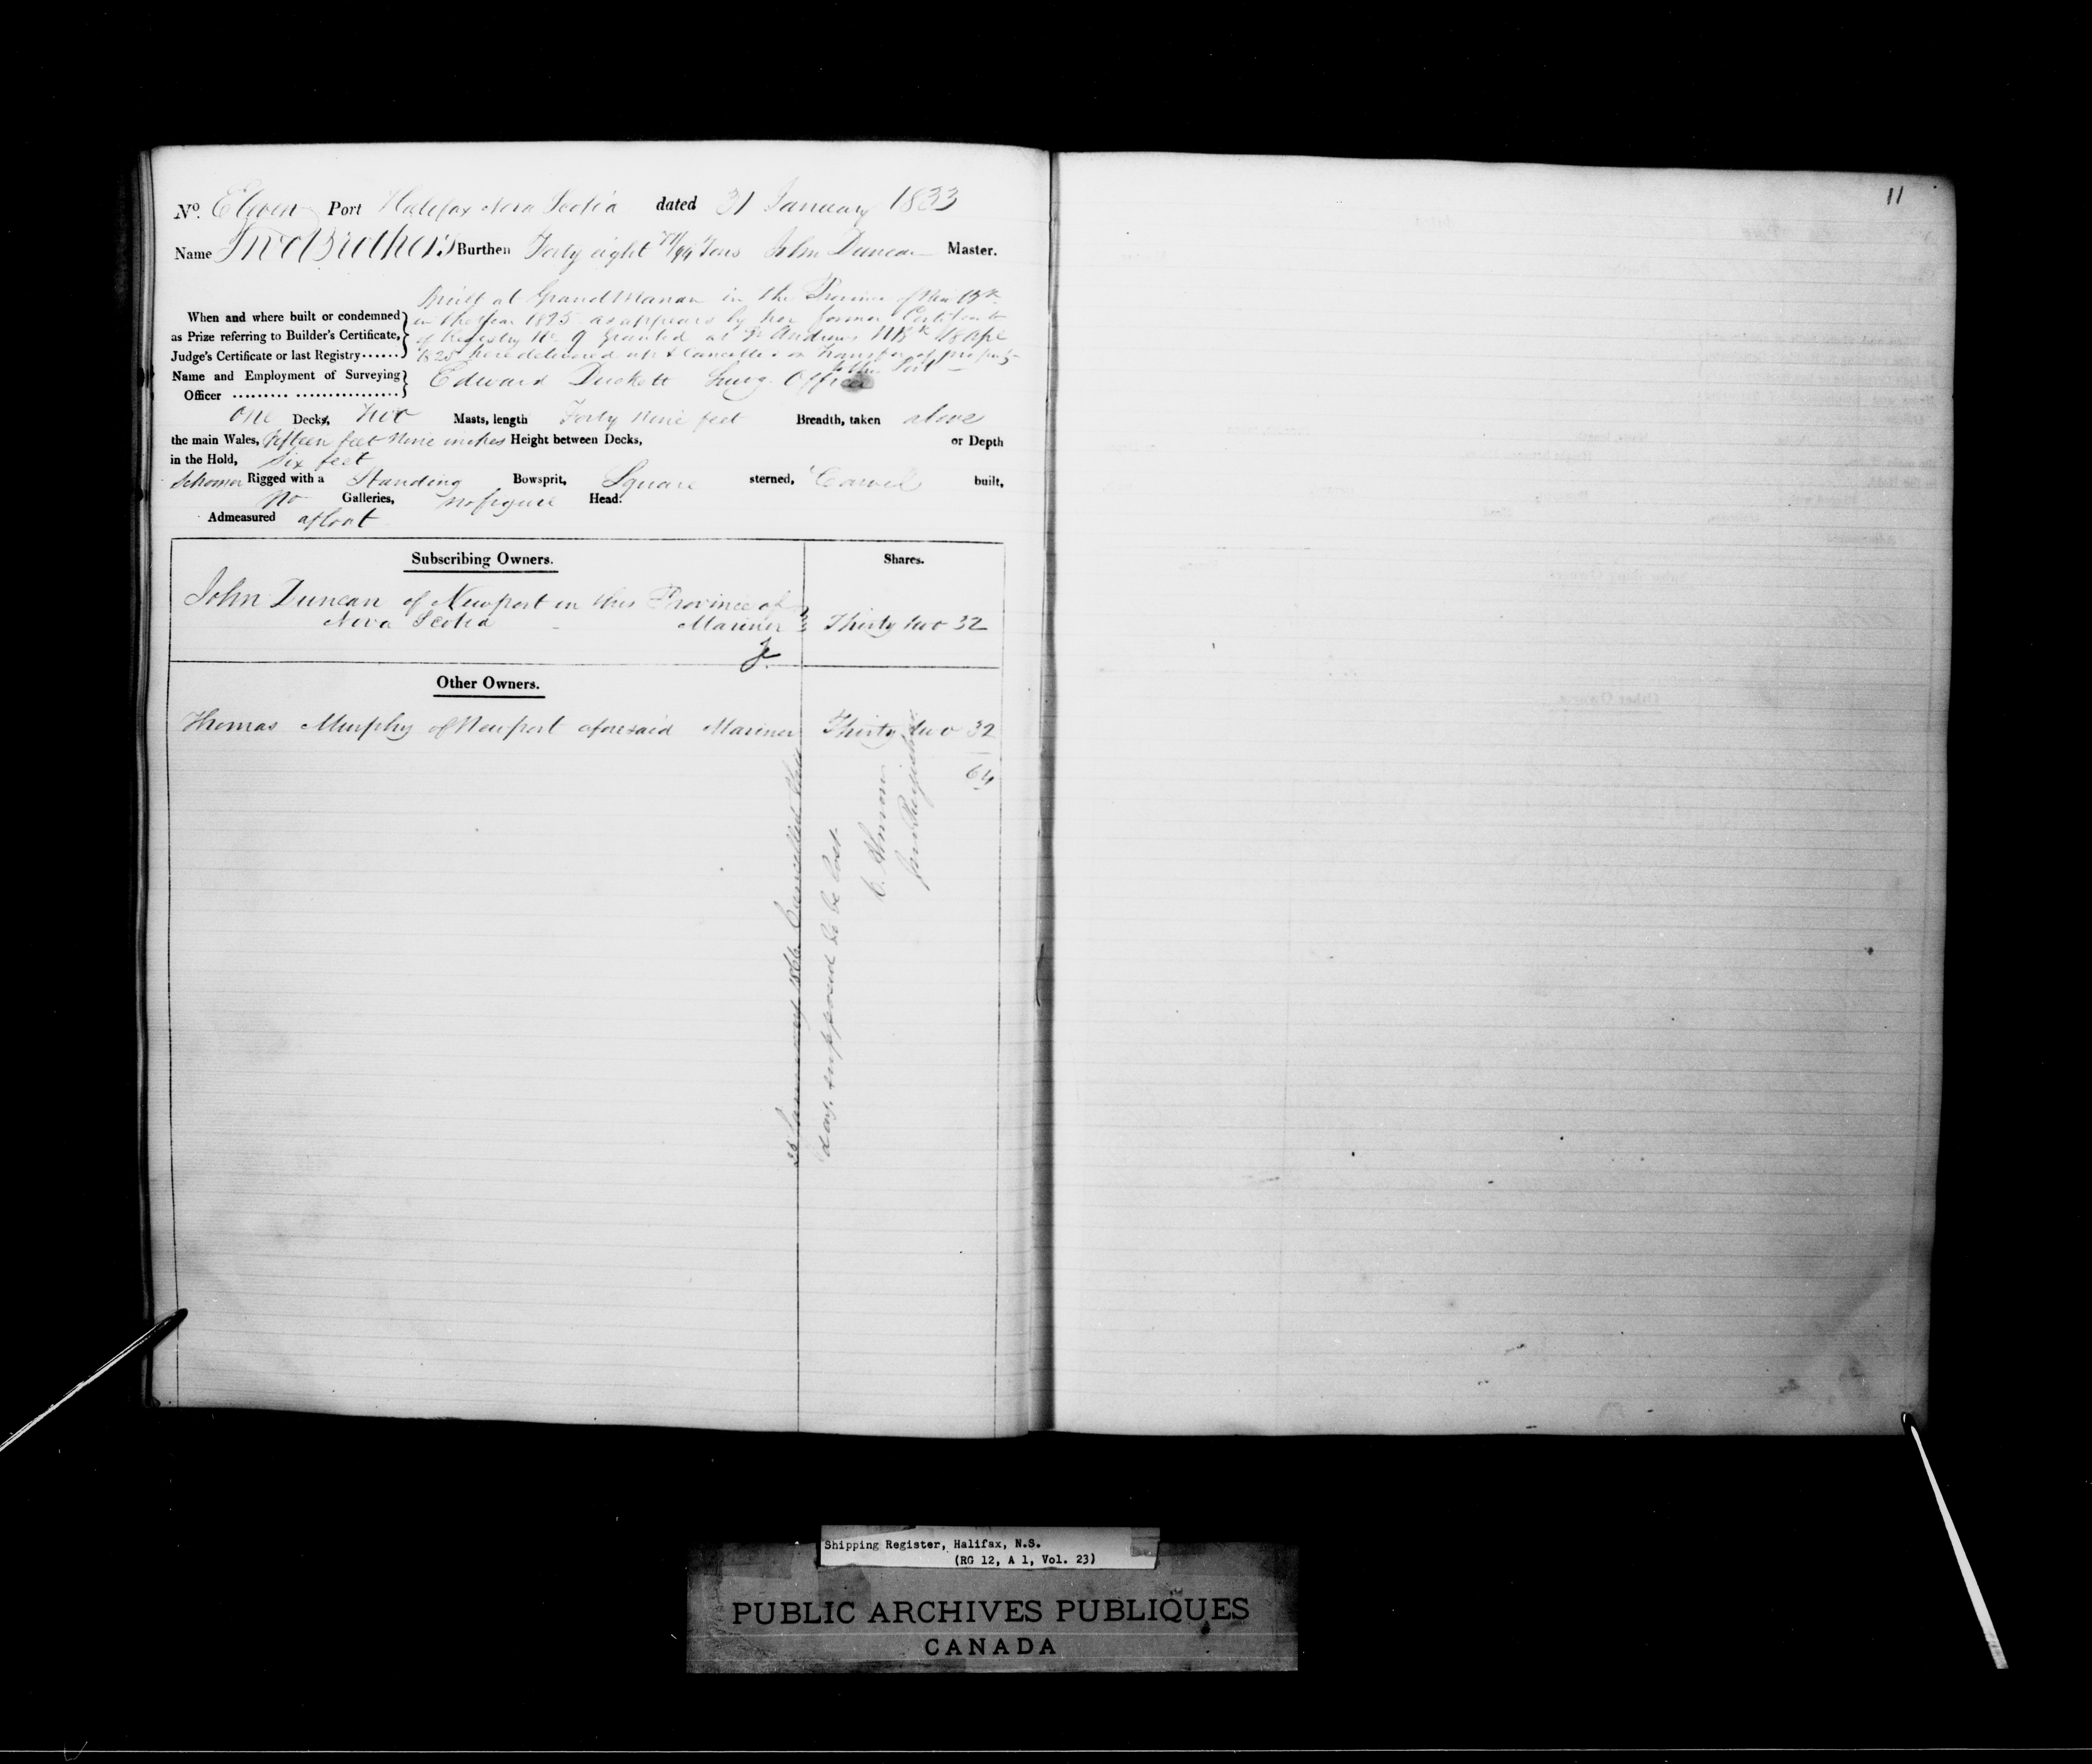 No. Eleven Port Halifax Nova Scotia dated 31 January 1833
Name Two Brothers Burthen Forty eight /94 Tons John Duncan Master.
Built at Grand Manan in the Province of New Bk
When and where built or condemned in the year 1825 as appears by her former Certificate
as Prize referring to Builder's Certificate, of Registry No 9 Granted at St Andrews NBk
Judge's Certificate or last Registry...... 1825 here delivered up & Cancelled on Transfer of property
to this Port
Name and Employment of Surveying Edward Duckett Survg. Officer
Officer
One Decks, Two Masts, length Forty nine feet Breadth, taken above
the main Wales, Fifteen feet Nine inches Height between Decks, or Depth
in the Hold, Six feet
Schooner Rigged with a Standing Bowsprit, Square sterned, Carvel built,
No Galleries, no figure Head.
Admeasured afloat
Subscribing Owners. Shares.
John Duncan of Newport in this Province of
Nova Scotia Mariner Thirty two 32
Other Owners.
Thomas Murphy of Newport aforesaid Mariner Thirty two 32
64
January 1866 Cancelled
supposed to be lost.
Registrar
11
Shipping Register, Halifax, N.S.
(RG 12, A 1, Vol. 23)
PUBLIC ARCHIVES PUBLIQUES
CANADA